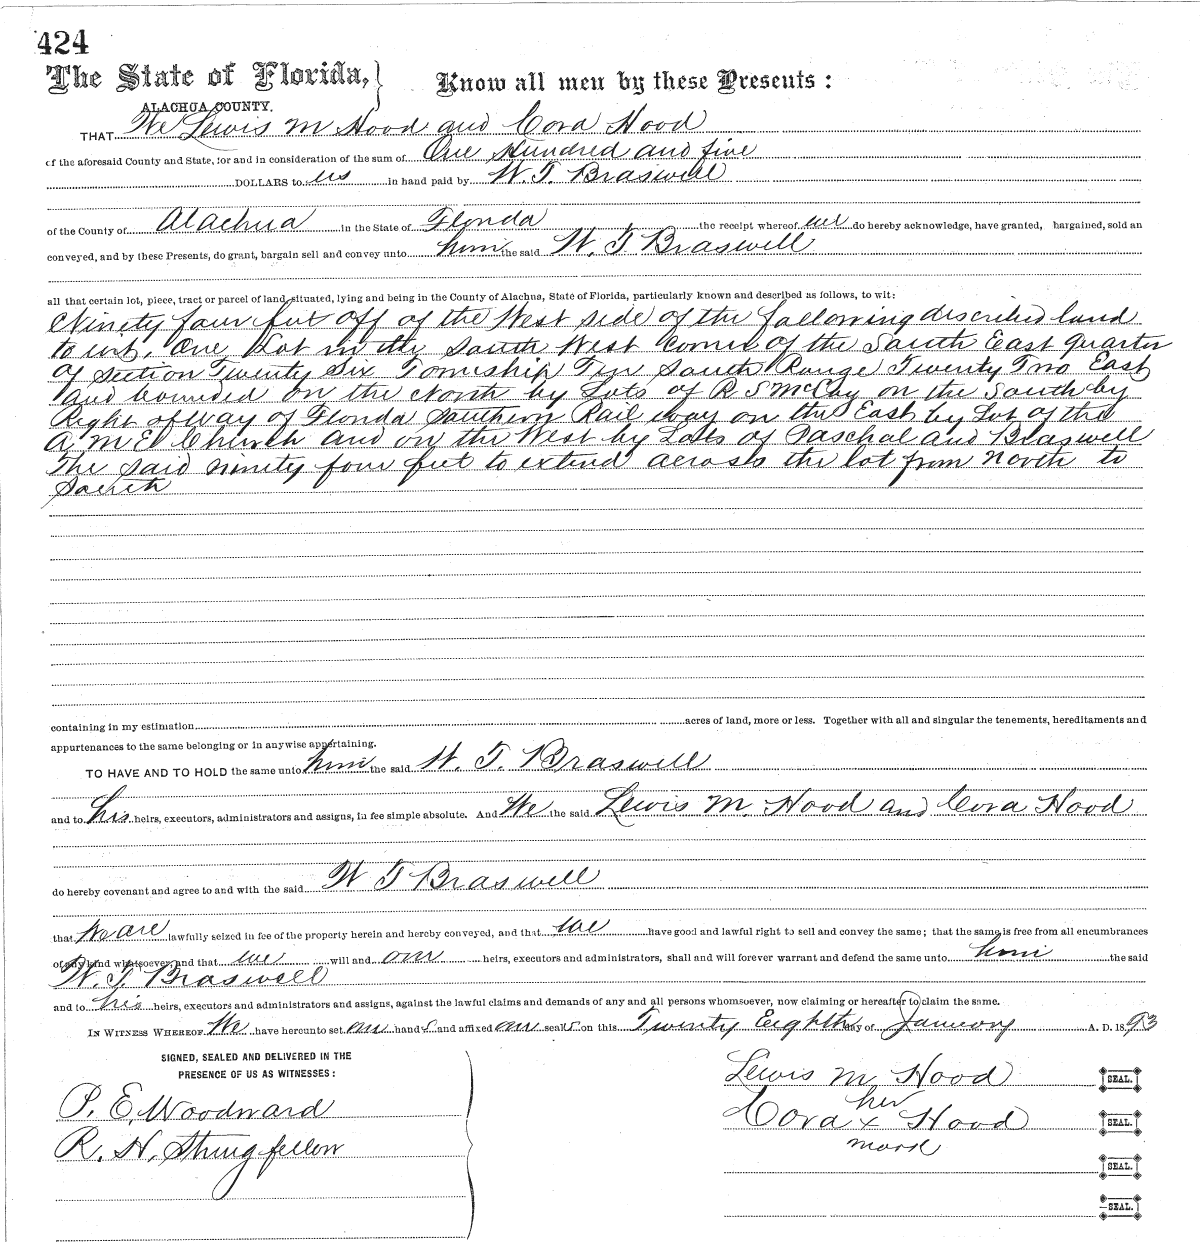 424
The State of Florida,} Know all men by these Presents:
ALACHUA COUNTY.
THAT We Lewis M Hood and Cora Hood
of the aforesaid County and State, for and in consideration of the sum of One Hundred and five
DOLLARS to us in hand paid by W. T. Braswell
of the County of Alachua in the State of Florida the receipt whereof we do hereby acknowledge, have granted, bargained, sold an
conveyed, and by these Presents, do grant, bargain sell and convey unto him the said W. T Braswell
all that certain lot, piece, tract or parcel of land, situated, lying and being in the County of Alachua, State of Florida, particularly known and described as follows, to wit:
Ninety four feet off of the West side of the following discribed land
to wit, One Lot in the South West Corner of the South East Quarter
of Section Twenty Six Township Ten South Range Twenty Two East
and bounded on the North by Lots of R S McCay on the South by
Right of Way of Florida Southern Rail way on the East by Lot of the
A M E Church and on the West by Lots of Paschal and Braswell
The said ninety four feet to extend across the lot from North to
South
containing in my estimation acres of land, more or less. Together with all and singular the tenements, hereditaments and
appurtenances to the same belonging or in anywise appertaining.
TO HAVE AND TO HOLD the same unto him the said W. T. Braswell
and to his heirs, executors, administrators and assigns, in fee simple absolute. And We the said Lewis M. Hood and Cora Hood
do hereby covenant and agree to and with the said W T Braswell
that we are lawfully seized in fee of the property herein and hereby conveyed, and that we have good and lawful right to sell and convey the same; that the same is free from all encumbrances
of any kind whatsoever, and that we will and our heirs, executors and administrators, shall and will forever warrant and defend the same unto him the said
W. T. Braswell
and to his heirs, executors and administrators and assigns, against the lawful claims and demands of any and all persons whomsoever, now claiming or hereafter to claim the same.
IN WITNESS WHEREOF We have hereunto set our hands and affixed our seals on this Twenty Eighth day of January A. D. 1893
SIGNED, SEALED AND DELIVERED IN THE
PRESENCE OF US AS WITNESSES:
P. E. Woodward
R. N. Stringfellow
Lewis M. Hood SEAL.
her
Cora x Hood SEAL.
mark
SEAL.
SEAL.